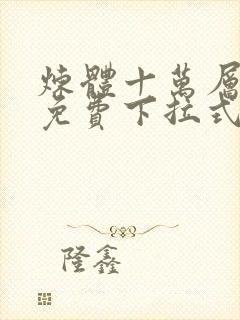 煉體十萬層
免費下拉式
隆鑫